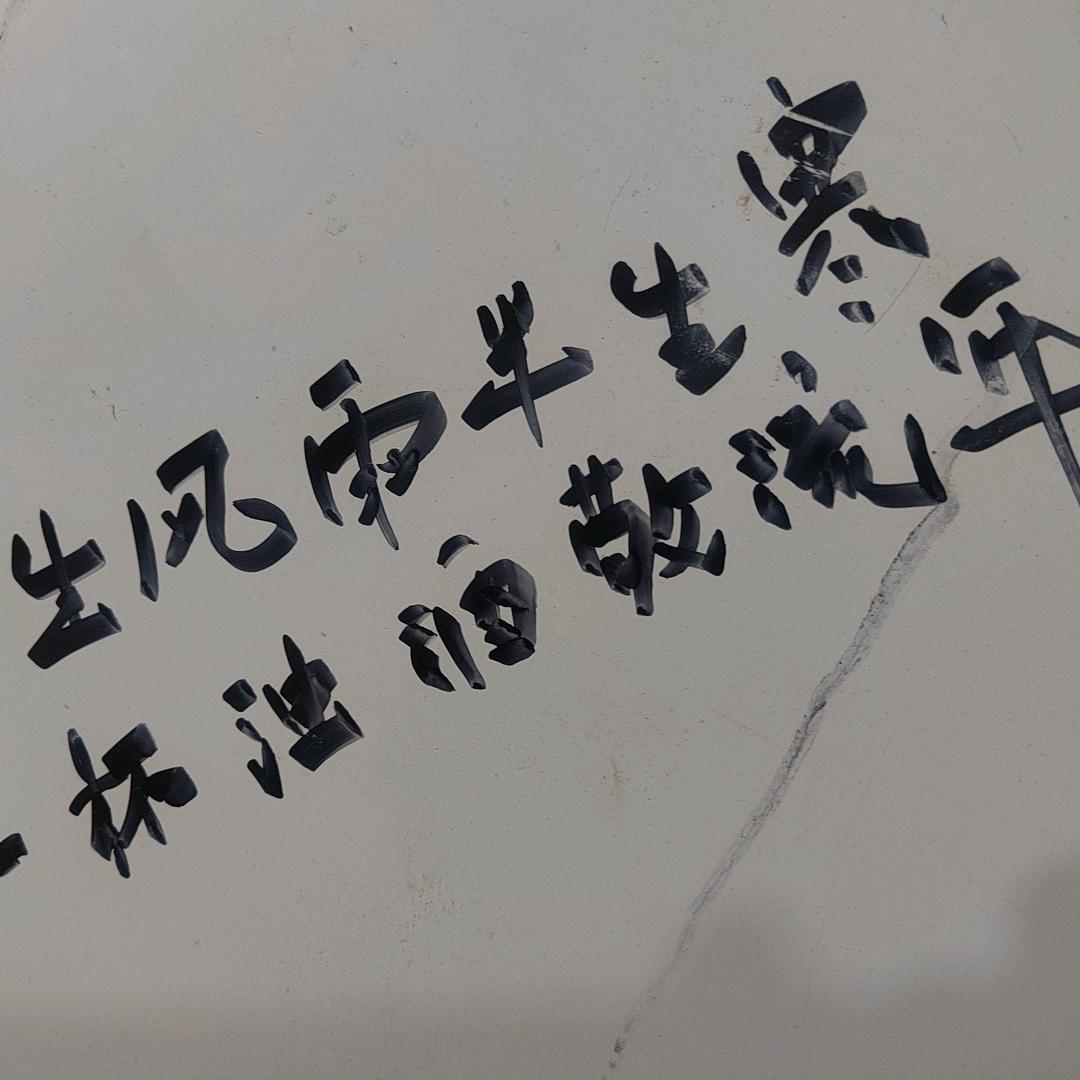 生风雨半生寒
一杯浊酒敬流年